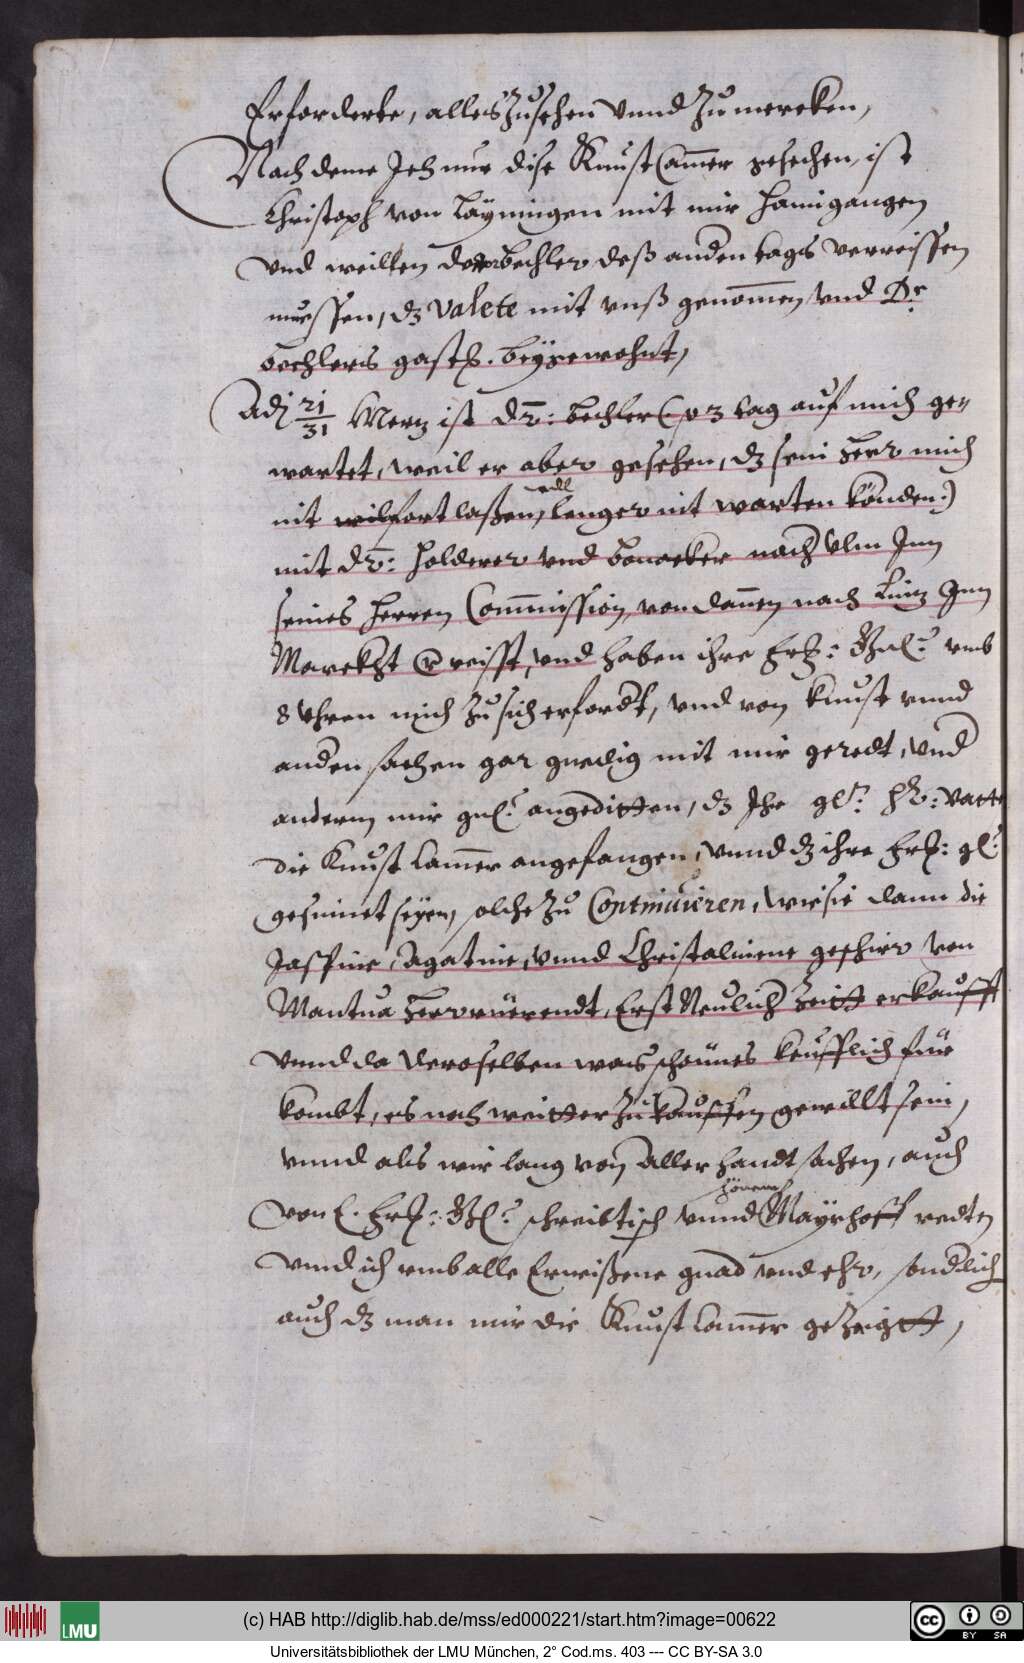 Erforderte, alles Zusehen vnnd Zu mercken,
Nach deme Ich nur dise Kunst Camer gesechen, ist
Christoph von Layningen mit mir haimgangen
vnd weillen der bechler deß andern tags verreissen
müessen, dz Valete mit vnß genomen vnd Dr
bechlers gasth. beygewohnt,
Adj 21/31 Mertz ist dr: bechler tag auf mich ge-
wartet, weil er aber gesehen, dz sein herr mich
nit fort laßen, will lenger nit warten könden:)
mit dr: holderer vnd nach Vlm Inn
seines herren Commission, von dannen nach Lintz Inn
Marckht verreisst, vnd haben ihre Ertz: vmb
8 Vhren mich Zu sich erfordt, vnd von Kunst vnnd
andern sachen gar gnedig mit mir geredt, vnd
anderm mir angeditten, dz Ihr hr: Vatter
die Kunst Camer angefangen, vnnd dz ihre Ertz:
gesinnet seyen, solche Zu Continuieren, wie sie dann die
Jaspine, Agatine, vnnd Christalinene geschirr von
Mantua herrüerendt, Erst Neulich Zeitt erkaufft
vnnd da deroselben was schönnes keufflich für
kombt, es noch weitter Zu kauffen gewillt sein,
vnnd als wir lang von Aller handt sachen, auch
von E. Ertz: schreibtisch vnnd schönem Mayrhoff redten
vnnd ich vmb alle Erwißene gnad vnd ehr, sondlich
auch dz man mir die Kunst Camer gezeigtt,
(c) HAB http://diglib.hab.de/mss/ed000221/start.htm?image=00622
LMU
BY SA
Universitätsbibliothek der LMU München, 2° Cod.ms. 403 --- CC BY-SA 3.0